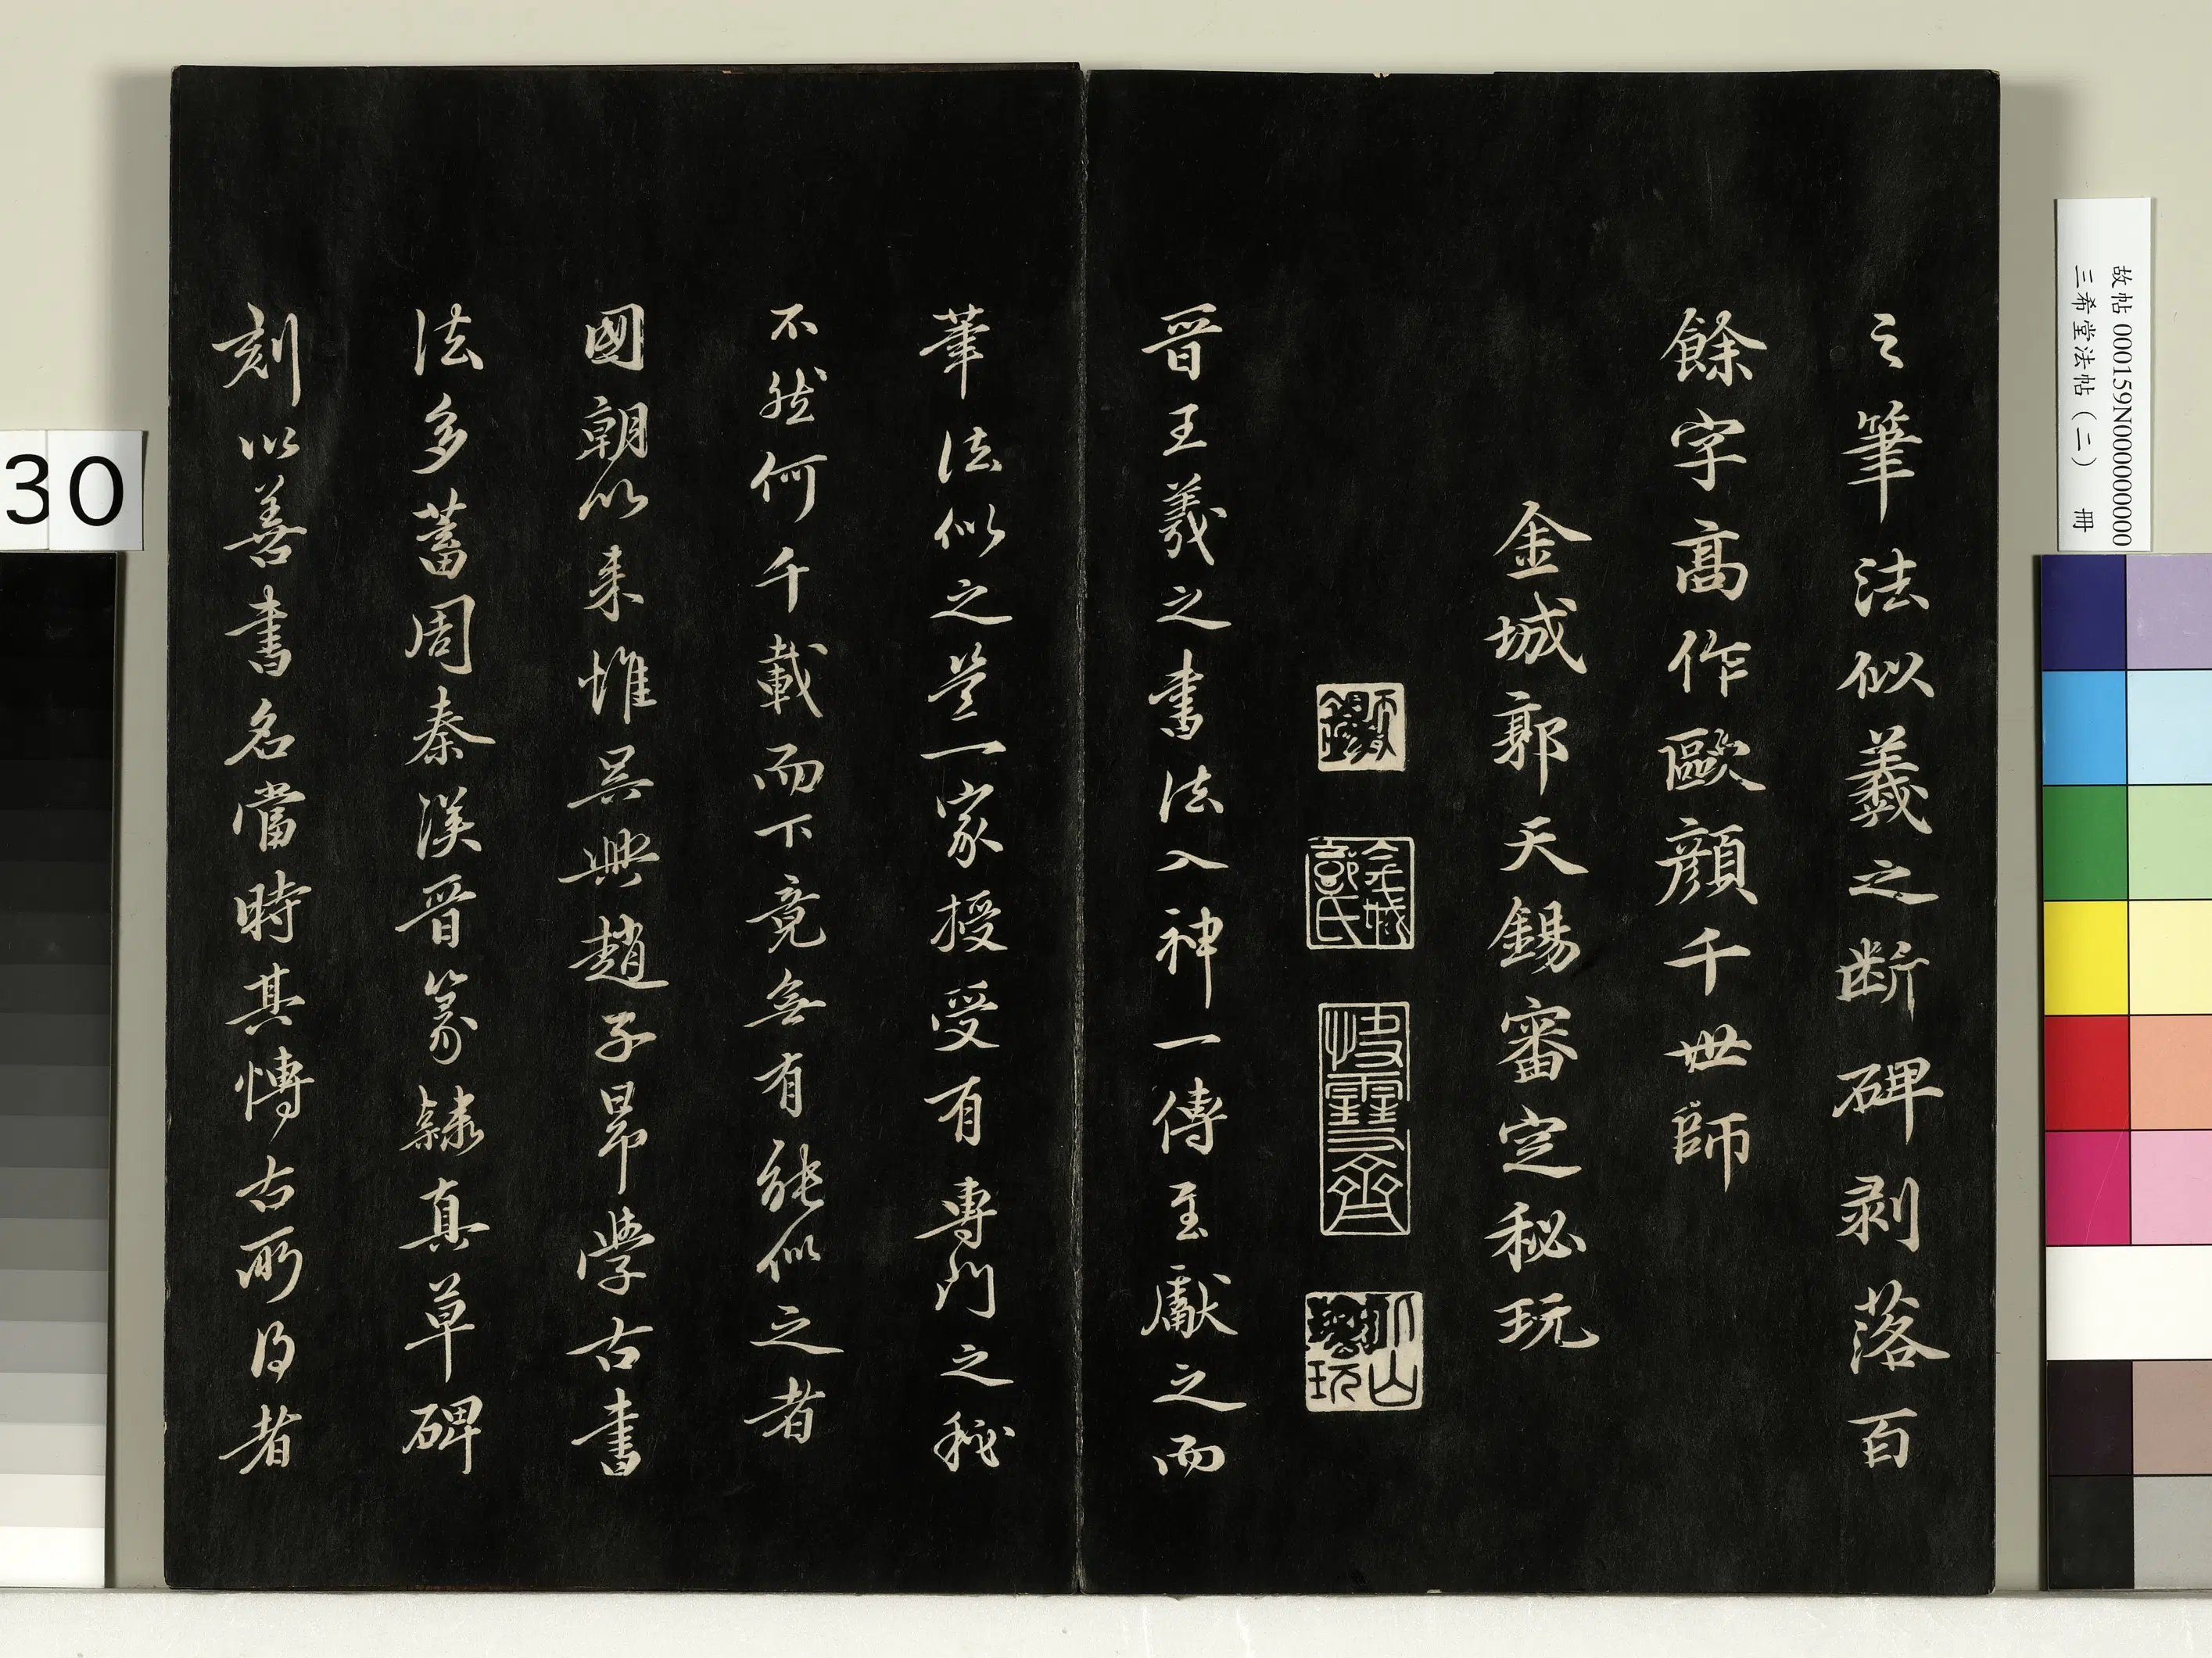 之筆法似羲之断碑剥落百
餘字髙作歐顔千世師
金城郭天錫審定秘玩
天錫
金城郭氏
快雪齋
晉王羲之書法入神一傳至獻之而
筆法似之豈一家授受有專門之秘
不然何千載而下竟無有能似之者
國朝以来惟吳興趙子昻學古書
法多蓄周秦漢晋篆隷真草碑
刻以善書名當時其慱古所得者
故帖 000159N000000000
三希堂法帖（二） 冊
30